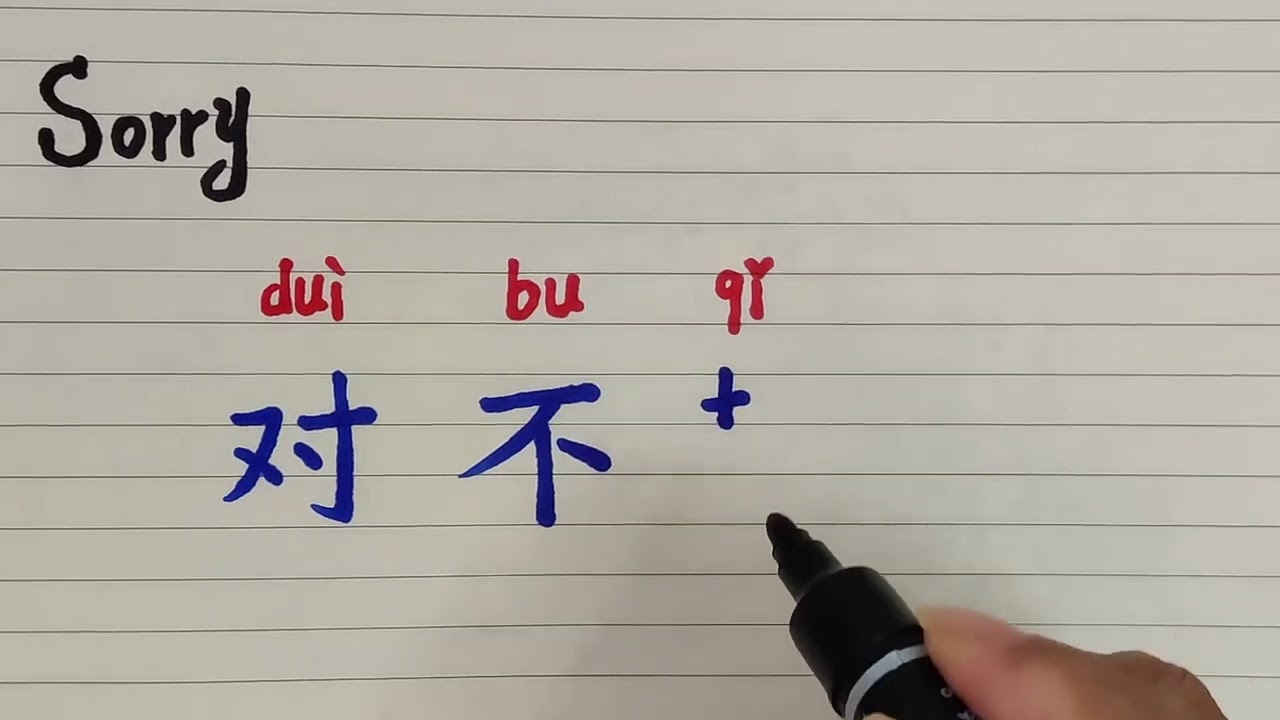 Sorry
duì bu qǐ
对 不 十